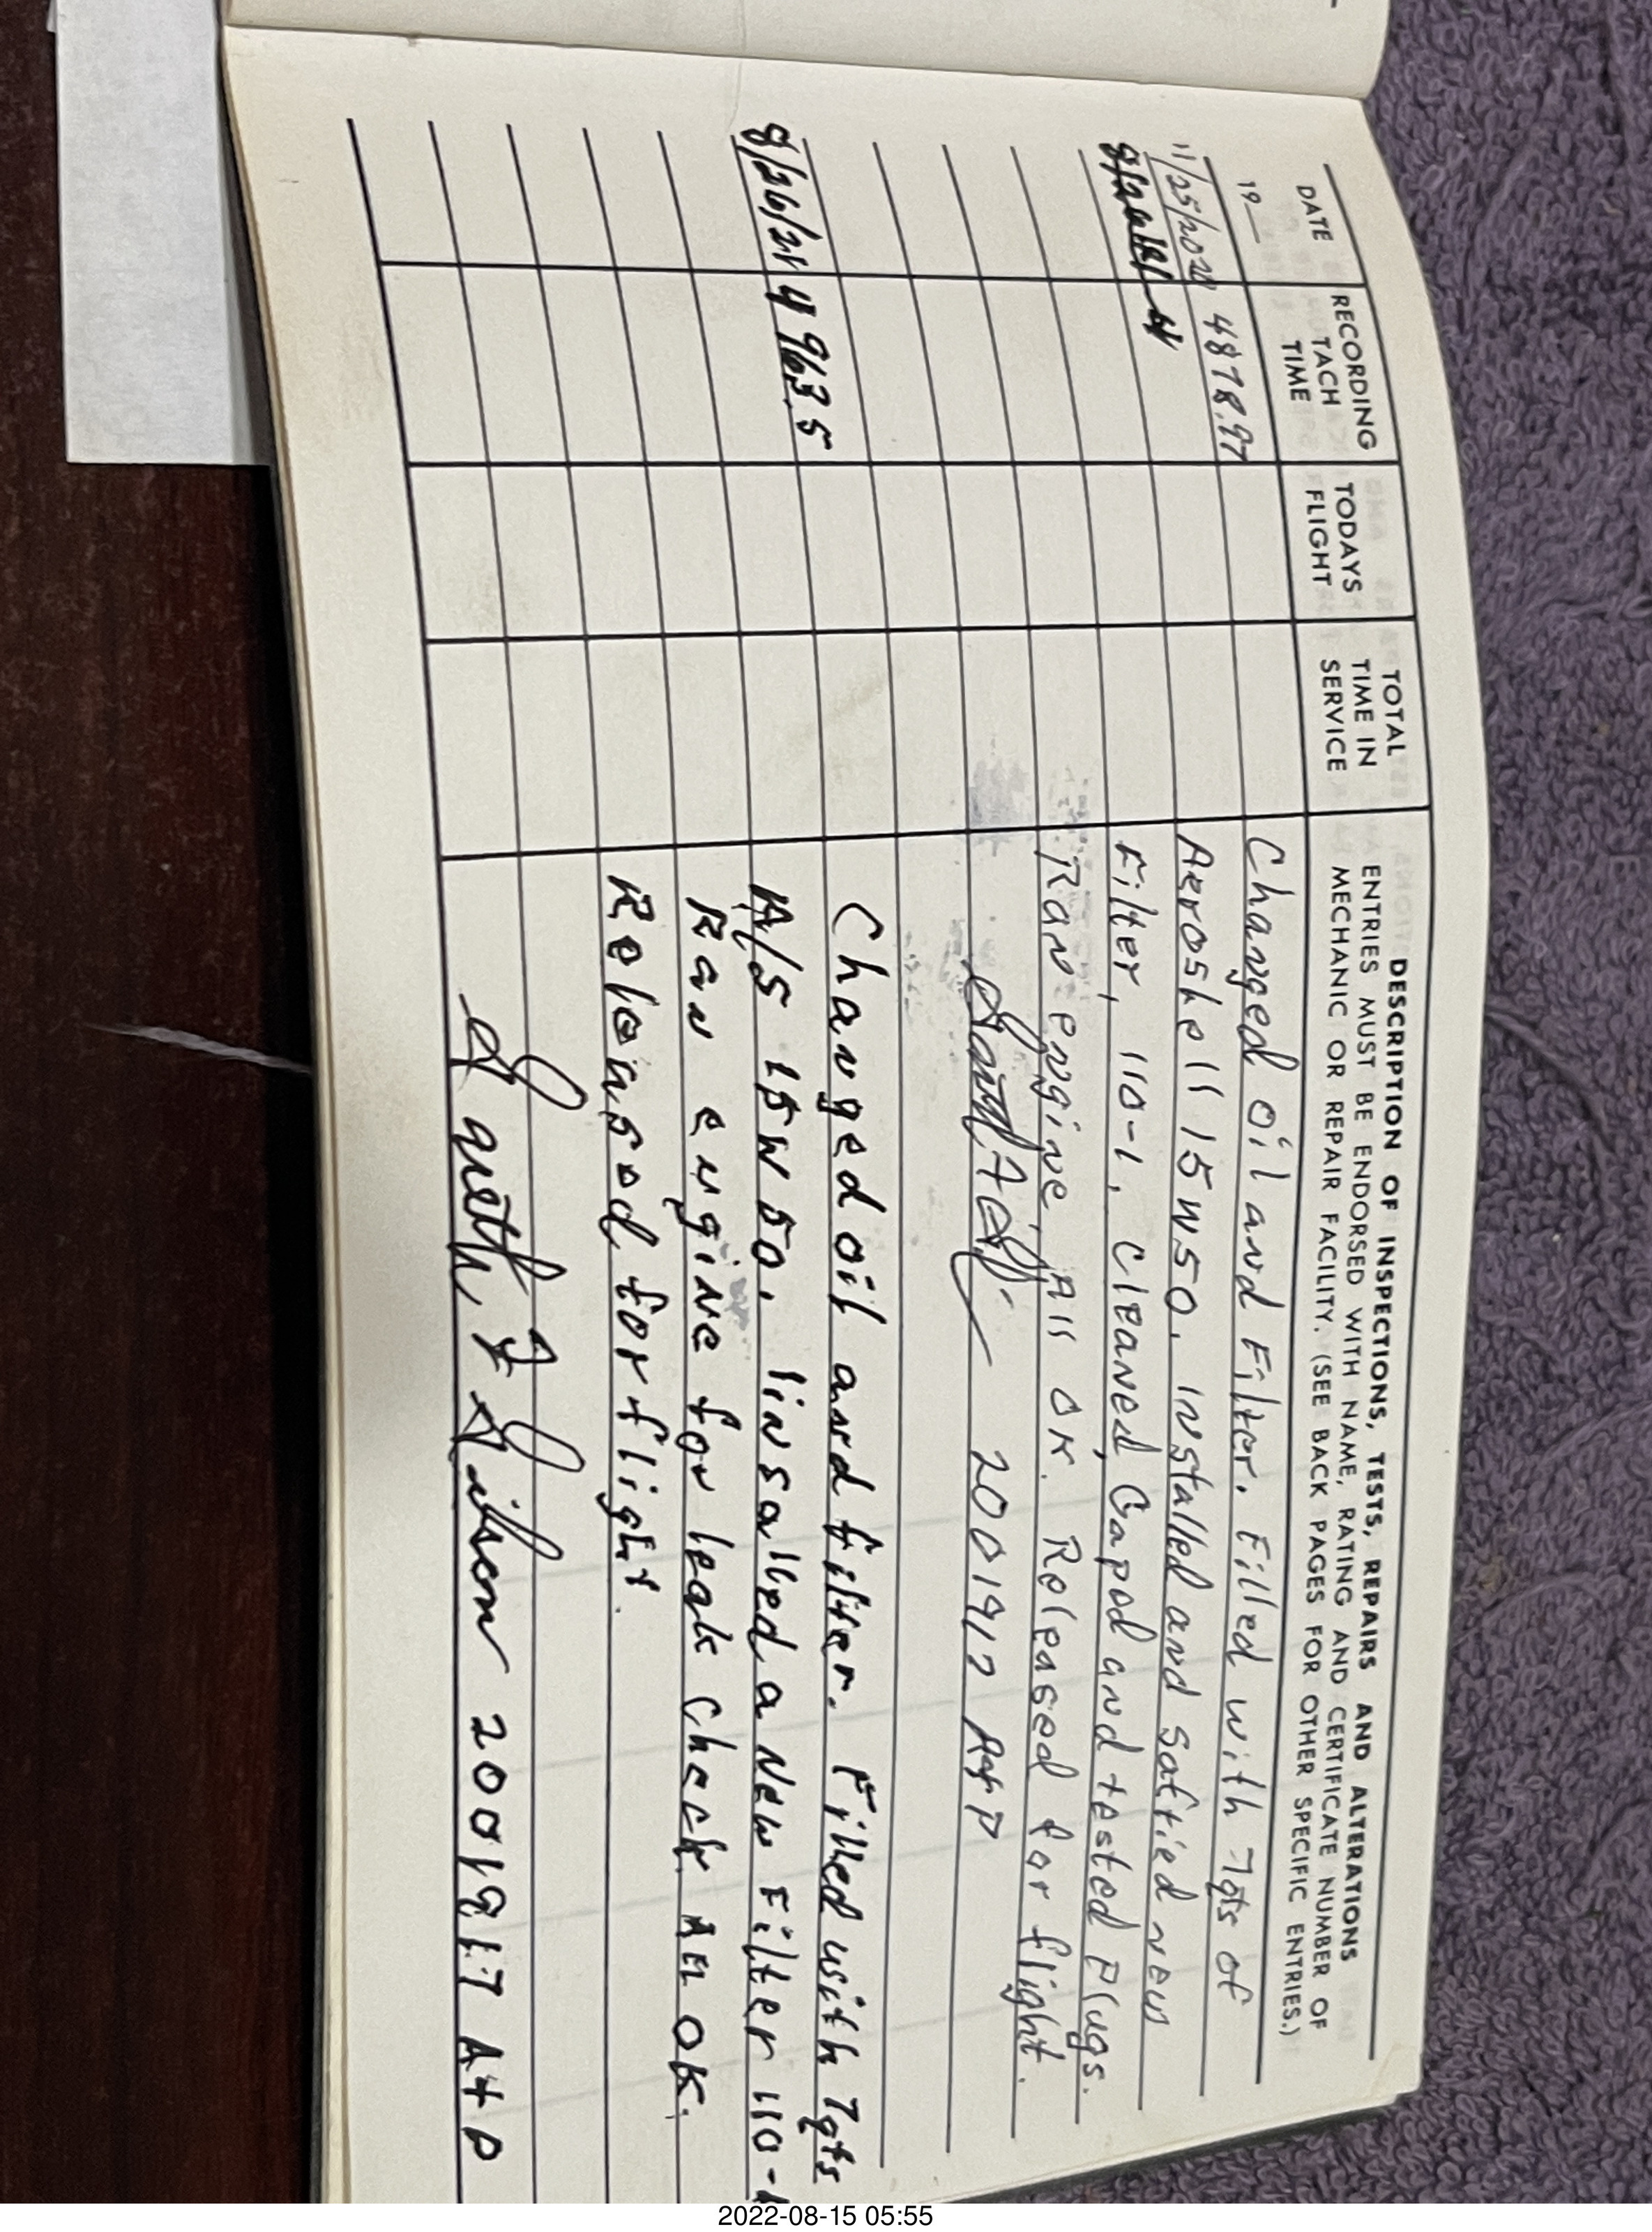 DATE
19__
RECORDING
TACH
TIME
TODAYS
FLIGHT
TOTAL
TIME IN
SERVICE
DESCRIPTION OF INSPECTIONS, TESTS, REPAIRS AND ALTERATIONS
ENTRIES MUST BE ENDORSED WITH NAME, RATING AND CERTIFICATE NUMBER OF
MECHANIC OR REPAIR FACILITY. (SEE BACK PAGES FOR OTHER SPECIFIC ENTRIES.)
11/25/2020 4878.97 Changed oil and Filter. Filled with 7qts of
Aeroshell 15W50. Installed and saftied new
Filter, 110-1. Cleaned, Gaped and tested Plugs.
Ran engine, All OK. Released for flight.
2001917 A&P
8/26/21 4963.5 Changed oil and filter. Filled with 7qts
A/S 15W50. Iinsalled a New Filter 110-1
Ran engine for leak Check. All OK.
Released for flight.
2001917 A+P
2022-08-15 05:55